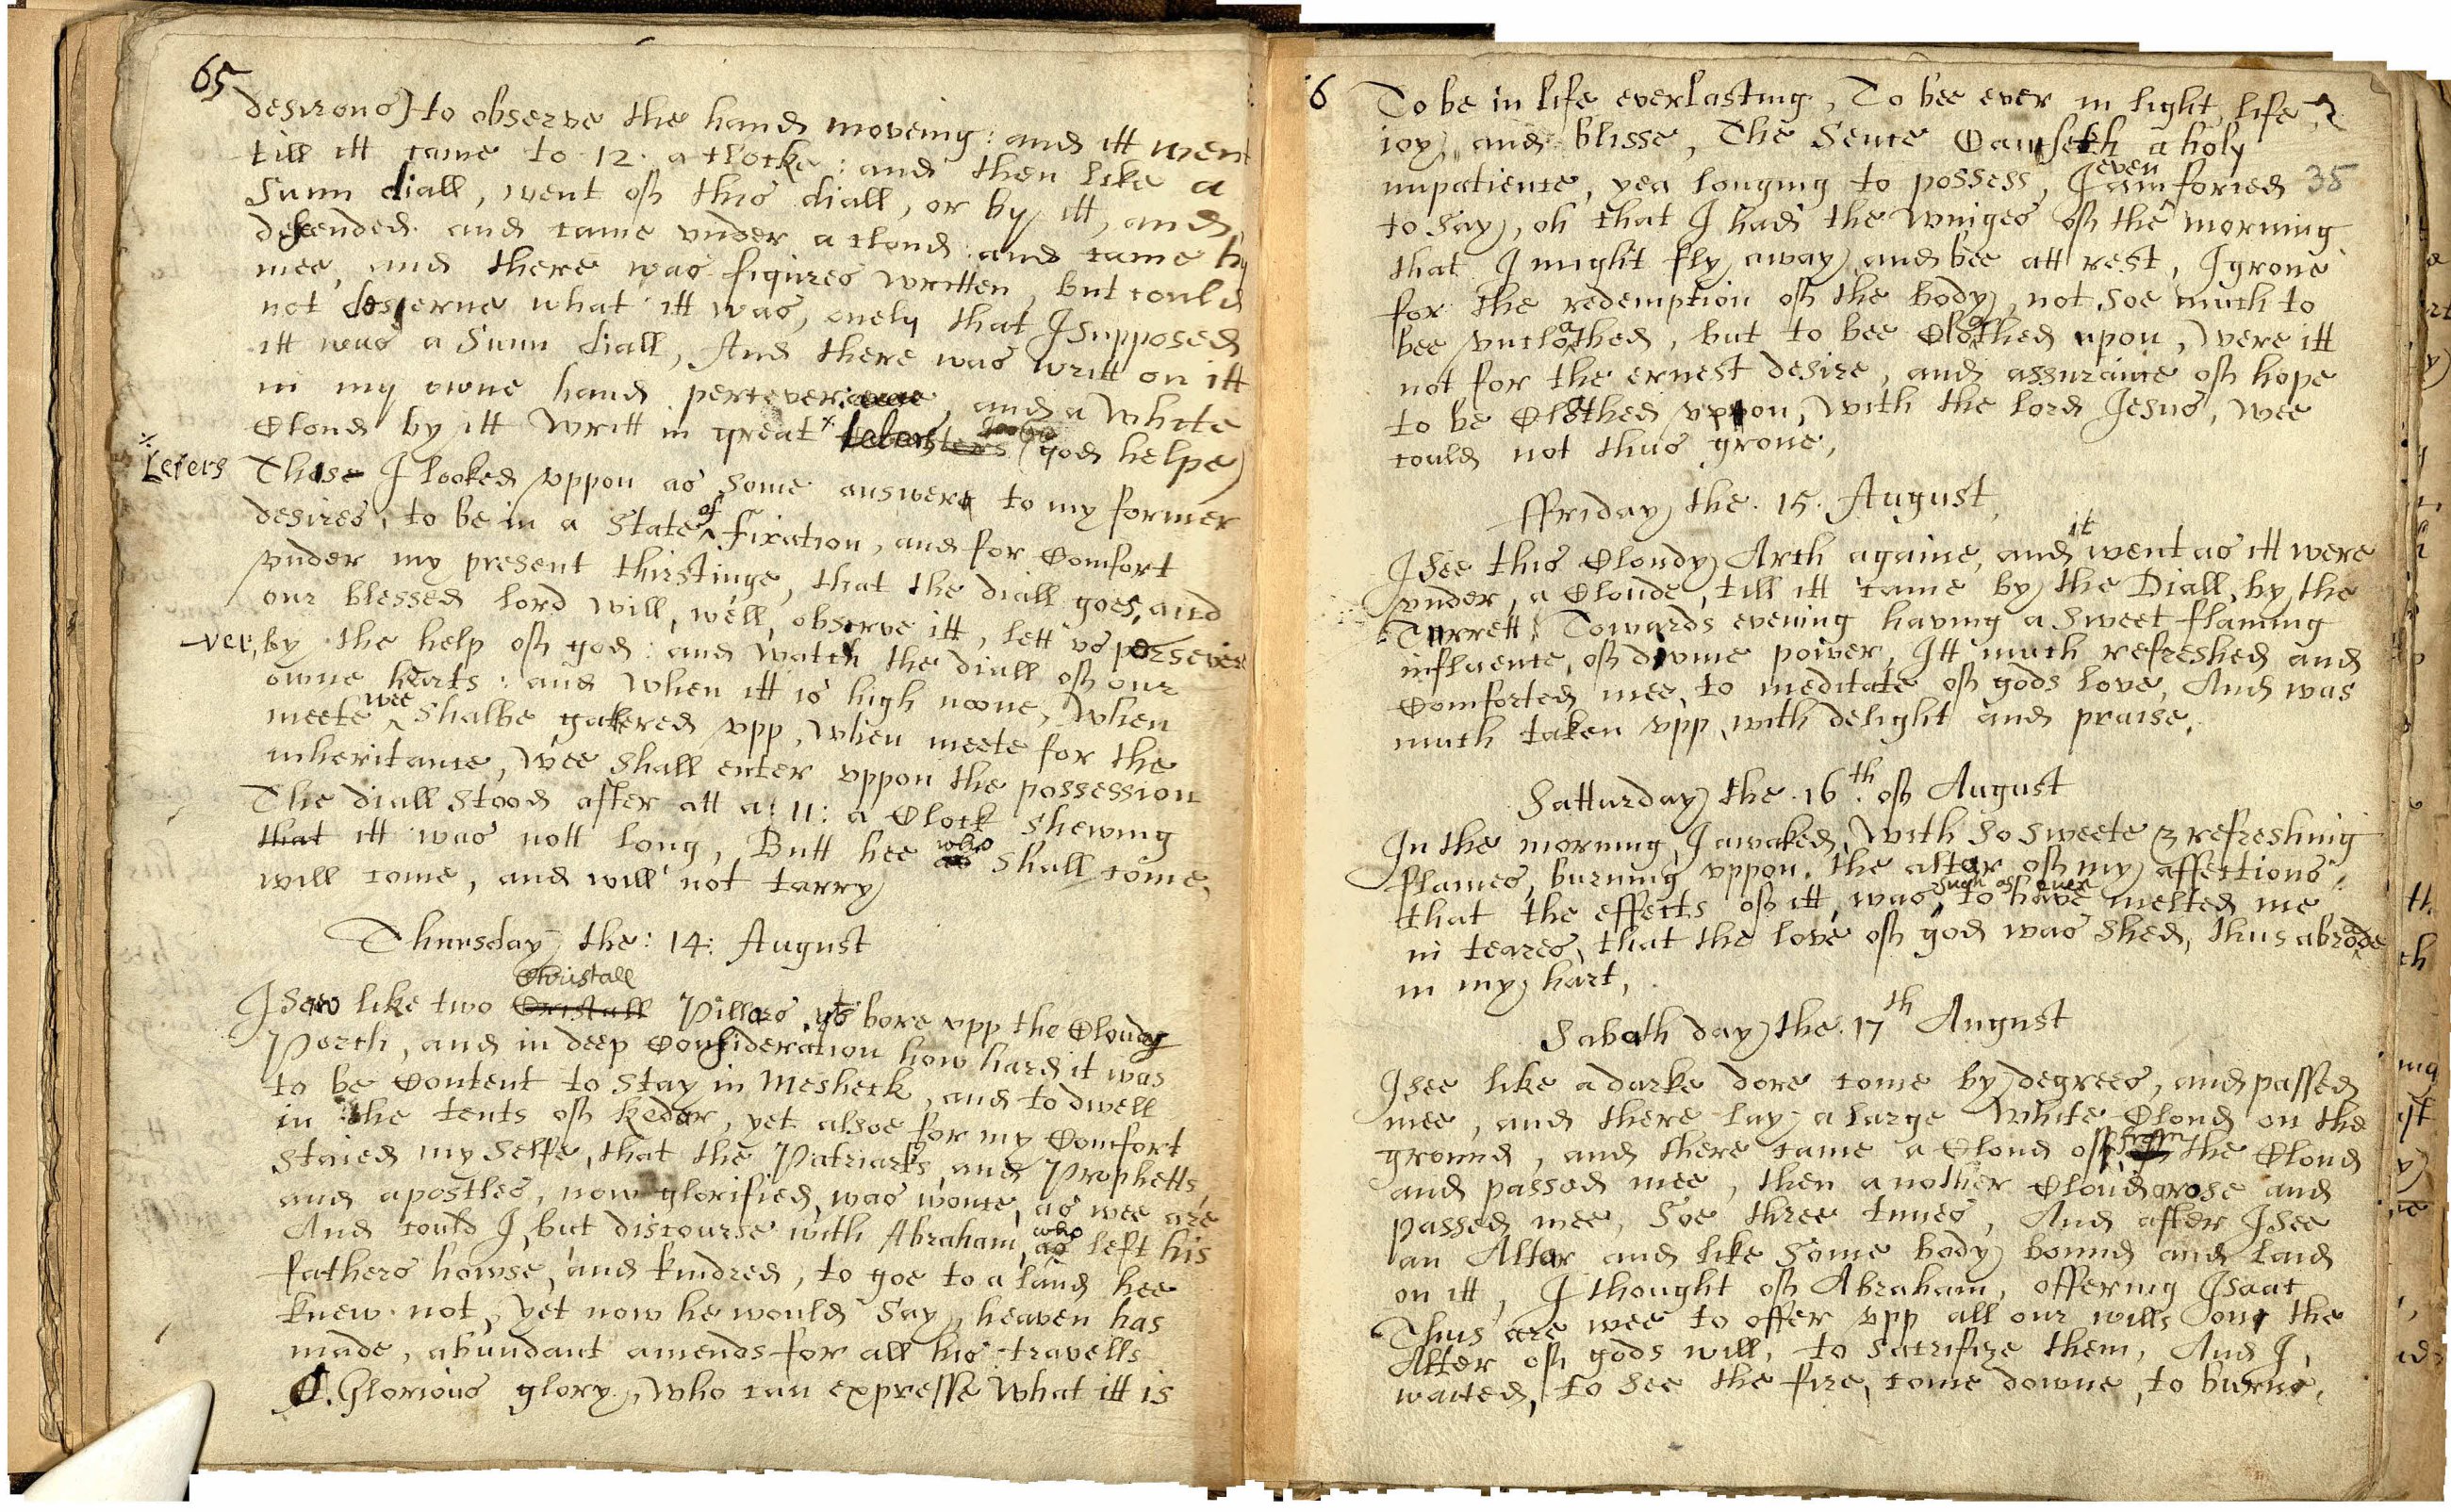 65
desirous) to observe the hand moveing: and itt went
till itt came to 12. a clocke: and then like a
Sunn diall, went off this diall, or by itt, and
descended and came under a cloud and came by
mee, and there was figures written, but could
not descerne what itt was, onely that I supposed
itt was a Sunn diall, And there was writt on itt
in my owne hand persever, and a white
Cloud by itt writt in great (god helpe)
Leters
These I looked uppon as some answere to my former
desires, to be in a State of fixation, and for Comfort
under my present thirstinge, that the diall goes, and
our blessed lord will, well, observe itt, lett us persever
ver, by the help off god: and watch the diall off our
owne hearts: and when itt is high noone, when
meete wee shalbe gatered upp, when meete for the
inheritance, wee shall enter uppon the possession
The diall stood after att a: 11: a Clock shewing
that itt was nott long, Butt hee who shall come,
will come, and will not tarry
Thursday the: 14: August
Christall
I saw like two Cristall Pillars, yt bore upp the Cloudy
Porch, and in deep Consideration how hard it was
to be Content to stay in Mesheck, and to dwell
in the tents off keder, yet alsoe for my Comfort
staied my selfe, that the Patriarks, and Prophetts,
and apostles, now glorified, was wonce, as wee are
And could I, but discourse with Abraham, who as left his
fathers howse, and kindred, to goe to a land hee
knew not, yet now he would say, heaven has
made, abundant amends for all his travells
O. Glorious glory, who can expresse what itt is
6
To be in life everlasting, To bee ever in light, life, &
ioy, and blisse, The sence Causeth a holy
impatience, yea longing to possess, I even am forced 35
to say, oh that I had the winges off the morning
that I might fly away, and bee att rest, I grone
for the redemption off the body, not soe much to
bee uncloathed, but to bee Cloathed upon, were itt
not for the ernest desire, and assuraince off hope
to be Cloathed uppon, with the lord Jesus, wee
could not thus grone,
ffriday the. 15. August,
I see this Cloudy Arch againe, and it went as itt were
under, a Cloude, till itt came by the Diall, by the
Turrett, Towards evening having a sweet flaming
influence, off divine power, Itt much refreshed and
Comforted mee, to meditate off gods love, And was
much taken upp, with delight and praise,
Satturday the. 16th. off August
In the morning I awaked, with so sweete & refreshing
flames, burning uppon, the alter off my affections,
that the effects off itt, was such as to have melted me
in teares, that the love off god was shed, thus abroade
in my hart,
Sabath day the. 17th August
I see like a darke dore come by degrees, and passed
mee, and there lay, a large white Cloud on the
ground, and there came a Cloud off from the Cloud
and passed mee, then another Cloud arose and
passed mee, soe three times, And after I see
an Alter and like some body bound and laid
on itt, I thought off Abraham, offering Isaac
Thus are wee to offer upp all our wills, on the
Alter off gods will, to sacrifize them, And I,
waited, to see the fire, come downe, to burne,